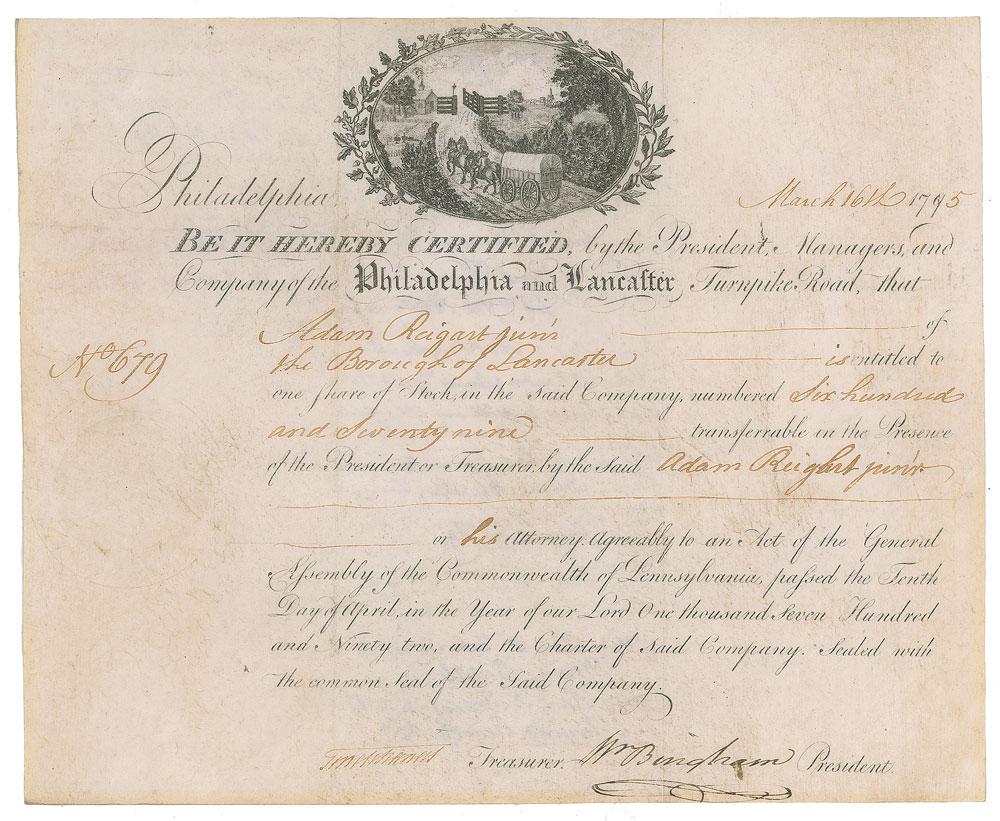 Philadelphia March 16th 1795
BE IT HEREBY CERTIFIED, by the President, Managers, and
Company of the Philadelphia and Lancaster Turnpike Road, that
Adam Reigart jun'r of
No 679
the Borough of Lancaster is entitled to
one share of Stock, in the said Company, numbered Six hundred
and Seventy nine transferrable in the Presence
of the President or Treasurer, by the Said Adam Reigart jun'r
or his Attorney. Agreeably to an Act of the General
Assembly of the Commonwealth of Pennsylvania, passed the Tenth
Day of April, in the Year of our Lord One thousand Seven Hundred
and Ninety two, and the Charter of said Company. Sealed with
the common Seal of the Said Company.
Treasurer. Wm Bingham President.